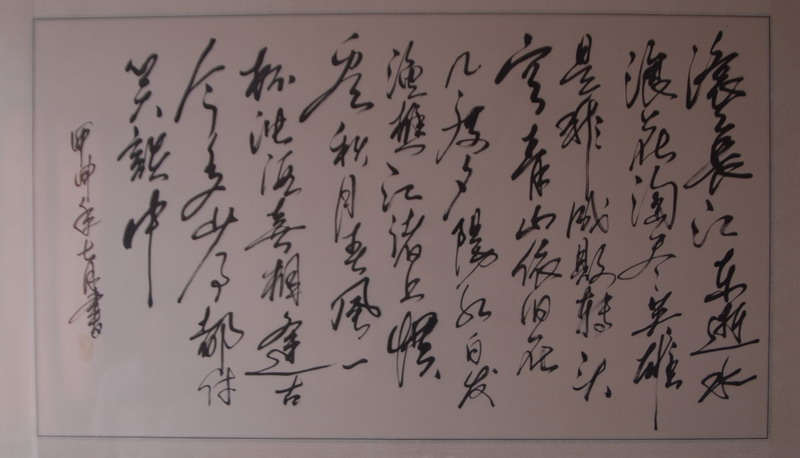 滚〻长江东逝水
浪花淘尽英雄
是非成败转头
空青山依旧在
几度夕阳红白发
渔樵江渚上惯
看秋月春风一
杯浊酒喜相逢古
今多少事都付
笑谈中
甲申年七月書